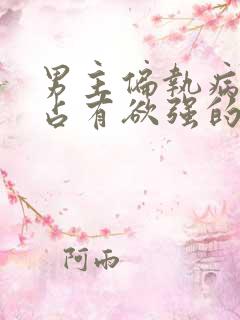 男主偏执病
占有欲强的
阿雨